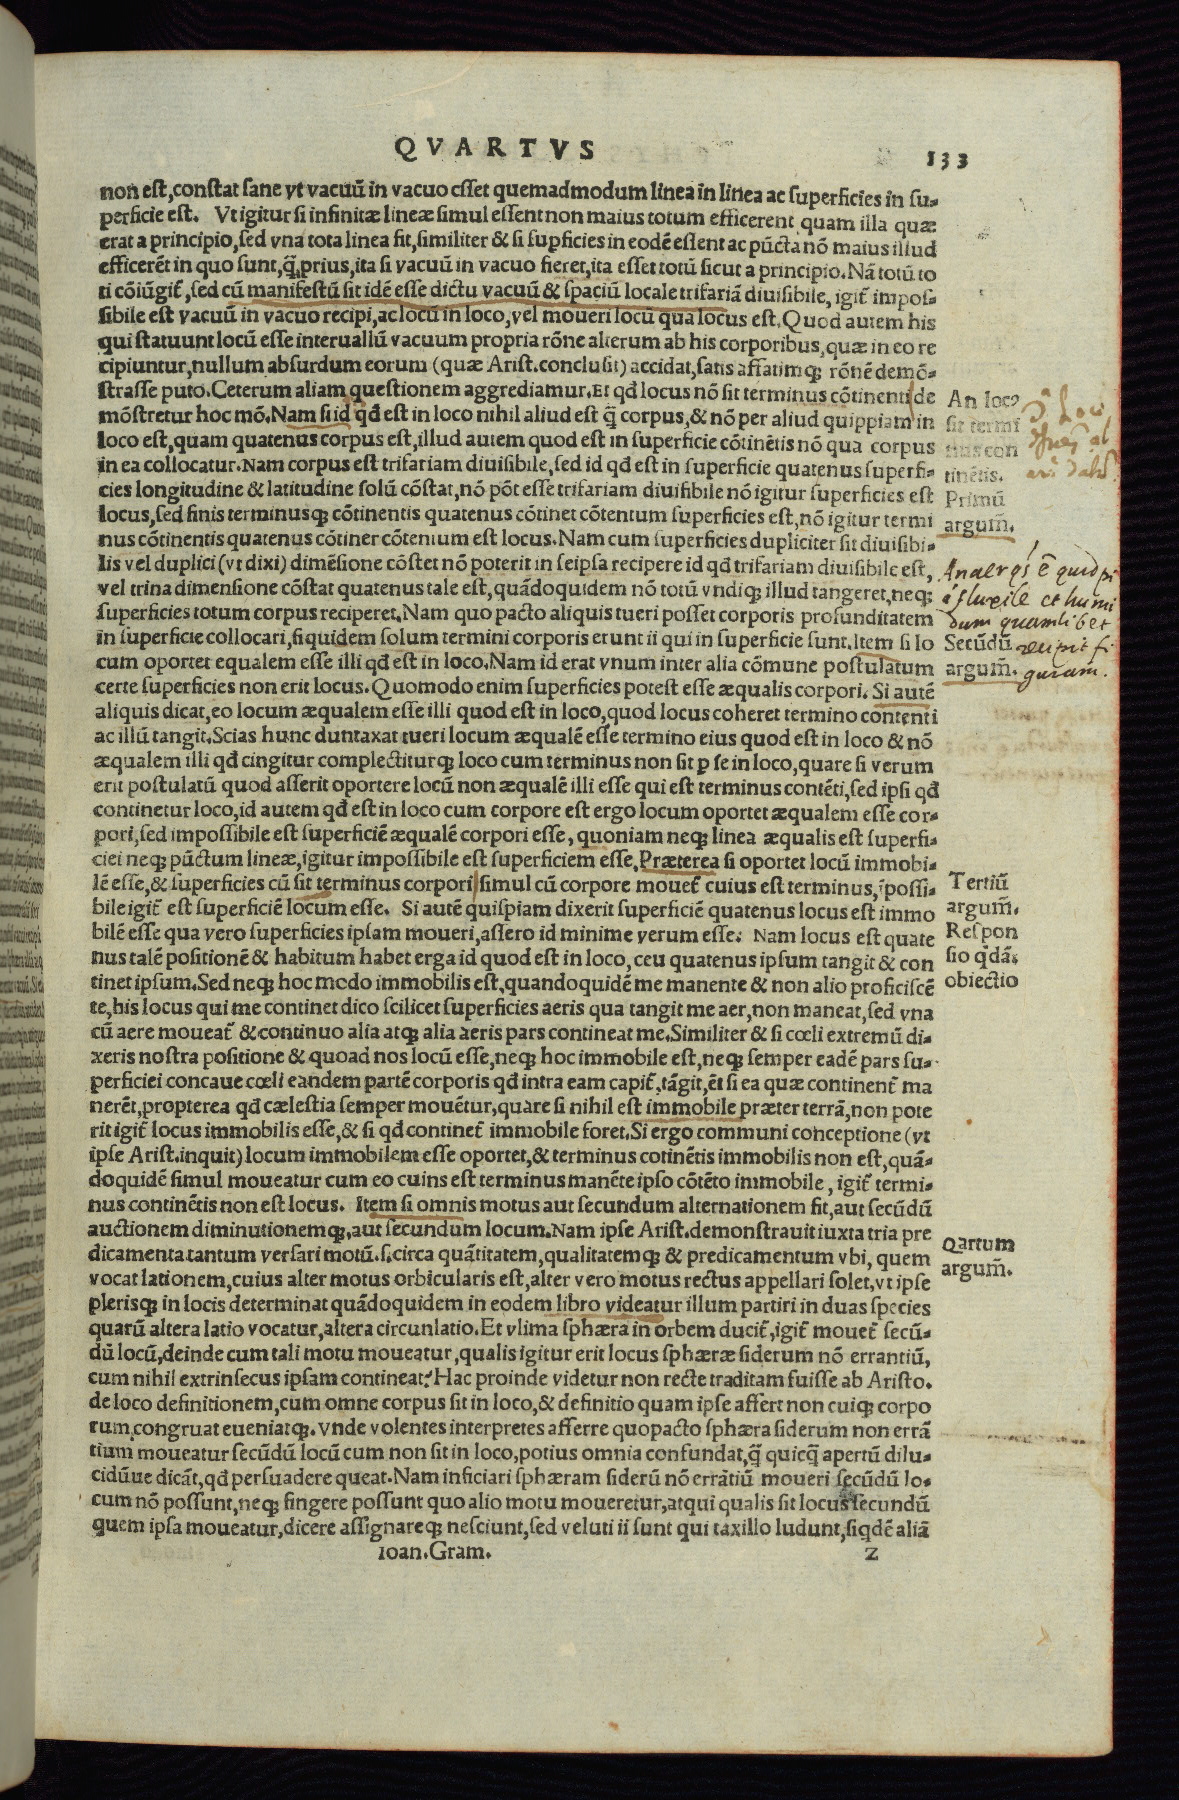 QVARTVS 133
non est,constat sane vt vacuũ in vacuo esset quemadmodum linea in linea ac superficies in su-
perficie est. Vt igitur si infinitæ lineæ simul essent non maius totum efficerent quam illa quæ
erat a principio,sed vna tota linea fit,similiter & si supficies in eodẽ essent ac pũcta nõ maius illud
efficerẽt in quo sunt,q̃ prius,ita si vacuũ in vacuo fieret,ita esset totũ sicut a principio.Nã totũ to
ti cõiũgit̃,sed cũ manifestũ sit idẽ esse dictu vacuũ & spaciũ locale trifariã diuisibile, igit̃ impos-
sibile est vacuũ in vacuo recipi,ac locũ in loco,vel moueri locũ qua locus est.Quod autem his
qui statuunt locũ esse interuallũ vacuum propria rõne alterum ab his corporibus,quæ in eo re
cipiuntur,nullum absurdum eorum (quæ Arist.conclusit) accidat,satis affatimq; rõnẽ demõ-
strasse puto.Ceterum aliam questionem aggrediamur.Et qđ locus nõ sit terminus cõtinenti de
mõstretur hoc mõ.Nam si id qđ est in loco nihil aliud est q̃ corpus,& nõ per aliud quippiam in
loco est,quam quatenus corpus est,illud autem quod est in superficie cõtinẽtis nõ qua corpus
in ea collocatur.Nam corpus est trifariam diuisibile,sed id qđ est in superficie quatenus superfi-
cies longitudine & latitudine solũ cõstat,nõ põt esse trifariam diuisibile nõ igitur superficies est
locus,sed finis terminusq; cõtinentis quatenus cõtinet cõtentum superficies est,nõ igitur termi
nus cõtinentis quatenus cõtiner cõtenium est locus.Nam cum superficies dupliciter sit diuisibi-
lis vel duplici (vt dixi) dimẽsione cõstet nõ poterit in seipsa recipere id qđ trifariam diuisibile est,
vel trina dimensione cõstat quatenus tale est,quãdoquidem nõ totũ vndiq; illud tangeret,neq;
superficies totum corpus reciperet.Nam quo pacto aliquis tueri posset corporis profunditatem
in superficie collocari,siquidem solum termini corporis erunt ii qui in superficie sunt.Item si lo
cum oportet equalem esse illi qđ est in loco.Nam id erat vnum inter alia cõmune postulatum
certe superficies non erit locus.Quomodo enim superficies potest esse æqualis corpori. Si autẽ
aliquis dicat,eo locum æqualem esse illi quod est in loco,quod locus coheret termino contenti
ac illũ tangit.Scias hunc duntaxat tueri locum æqualẽ esse termino eius quod est in loco & nõ
æqualem illi qđ cingitur complectiturq; loco cum terminus non sit p se in loco,quare si verum
erit postulatũ quod asserit oportere locũ non æqualẽ illi esse qui est terminus contẽti,sed ipsi qđ
continetur loco,id autem qđ est in loco cum corpore est ergo locum oportet æqualem esse cor-
pori,sed impossibile est superficiẽ æqualẽ corpori esse, quoniam neq; linea æqualis est superfi-
ciei neq; pũctum lineæ,igitur impossibile est superficiem esse.Præterea si oportet locũ immobi-
lẽ esse,& superficies cũ sit terminus corpori simul cũ corpore mouet̃ cuius est terminus,ĩpossi-
bile igit̃ est superficiẽ locum esse. Si autẽ quispiam dixerit superficiẽ quatenus locus est immo
bilẽ esse qua vero superficies ipsam moueri,assero id minime verum esse. Nam locus est quate
nus talẽ positionẽ & habitum habet erga id quod est in loco,ceu quatenus ipsum tangit & con
tinet ipsum.Sed neq; hoc modo immobilis est,quandoquidẽ me manente & non alio proficiscẽ
te,his locus qui me continet dico scilicet superficies aeris qua tangit me aer,non maneat,sed vna
cũ aere moueat̃ & continuo alia atq; alia aeris pars contineat me.Similiter & si cœli extremũ di-
xeris nostra positione & quoad nos locũ esse,neq; hoc immobile est,neq; semper eadẽ pars su-
perficiei concaue cœli eandem partẽ corporis qđ intra eam capit̃,tãgit,ẽt si ea quæ continent̃ ma
nerẽt,propterea qđ cælestia semper mouẽtur,quare si nihil est immobile præter terrã,non pote
rit igit̃ locus immobilis esse,& si qđ continet̃ immobile foret.Si ergo communi conceptione (vt
ipse Arist.inquit) locum immobilem esse oportet,& terminus cotinẽtis immobilis non est,quã-
doquidẽ simul moueatur cum eo cuins est terminus manẽte ipso cõtẽto immobile, igit̃ termi-
nus continẽtis non est locus. Item si omnis motus aut secundum alternationem fit,aut secũdũ
auctionem diminutionemq;,aut secundum locum.Nam ipse Arist.demonstrauit iuxta tria pre
dicamenta tantum versari motũ.s.circa quãtitatem,qualitatemq; & predicamentum vbi, quem
vocat lationem,cuius alter motus orbicularis est,alter vero motus rectus appellari solet,vt ipse
plerisq; in locis determinat quãdoquidem in eodem libro videatur illum partiri in duas species
quarũ altera latio vocatur,altera circunlatio.Et vlima sphæra in orbem ducit̃,igit̃ mouet̃ secũ-
dũ locũ,deinde cum tali motu moueatur,qualis igitur erit locus sphæræ siderum nõ errantiũ,
cum nihil extrinsecus ipsam contineat?Hac proinde videtur non recte traditam fuisse ab Aristo.
de loco definitionem,cum omne corpus sit in loco,& definitio quam ipse affert non cuiq; corpo
rum congruat eueniatq;.vnde volentes interpretes afferre quopacto sphæra siderum non errã
tium moueatur secũdũ locũ cum non sit in loco,potius omnia confundat,q̃ quicq̃ apertũ dilu-
cidũue dicãt,qđ persuadere queat.Nam inficiari sphæram siderũ nõ errãtiũ moueri secũdũ lo-
cum nõ possunt,neq; fingere possunt quo alio motu moueretur,atqui qualis sit locus secundũ
quem ipsa moueatur,dicere assignareq; nesciunt,sed veluti ii sunt qui taxillo ludunt,siqdẽ aliã
Ioan.Gram. Z
An locꝰ
sit termi
nus con
tinẽtis.
Primũ
argum̃.
An aer
est quid
fluxile et humi
dum quamlibet
recipit fi
guram.
Secũdũ
argum̃.
Tertiũ
argum̃.
Respon
sio q̃dã.
obiectio
Qartum
argum̃.